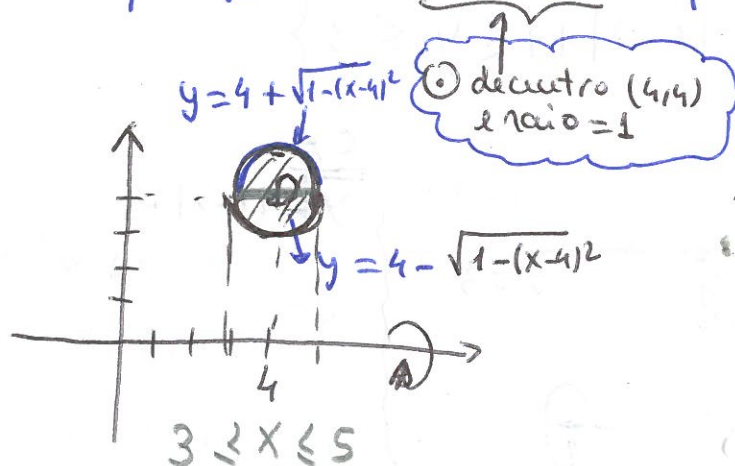 y = 4 + √1-(x-4)²
⊙ de centro (4,4)
e raio = 1
y = 4 - √1-(x-4)²
4
3 ≤ x ≤ 5